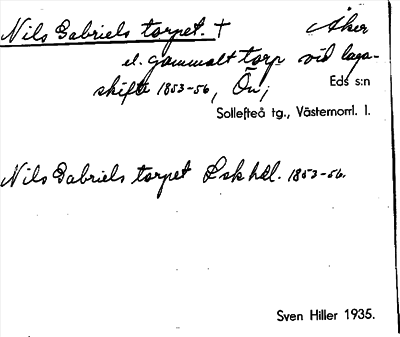 Nils Gabriels torpet. † Åker
el. gammalt torp vid laga-
skifte 1853-56, Ön,
Eds s:n
Sollefteå tg., Västernorrl. l.
Nils Gabriels torpet Lsk hdl. 1853-56.
Sven Hiller 1935.